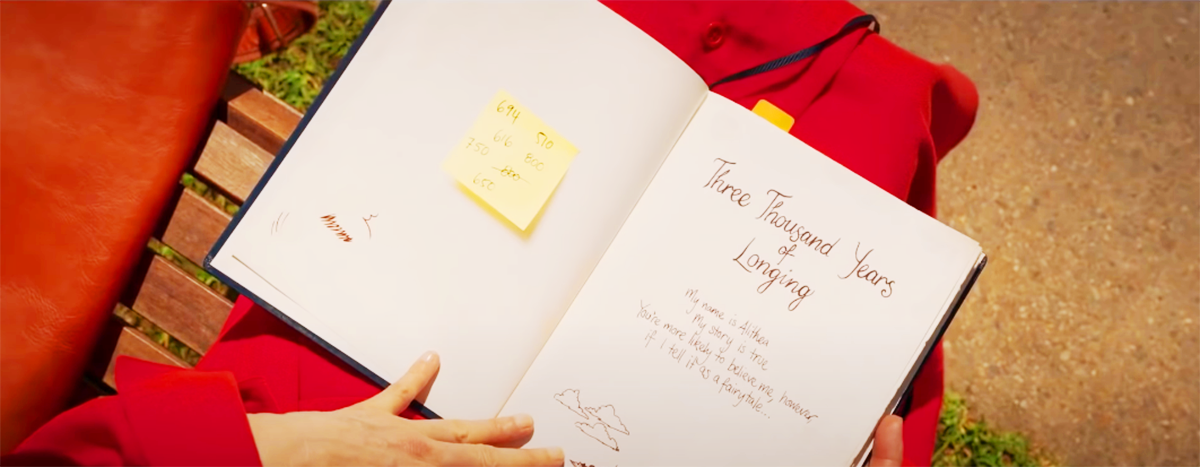 694 510
616 800
750
650
Three Thousand Years
of
Longing
My name is Alithea
My story is true
You're more likely to believe me, however,
if I tell it as a fairytale...